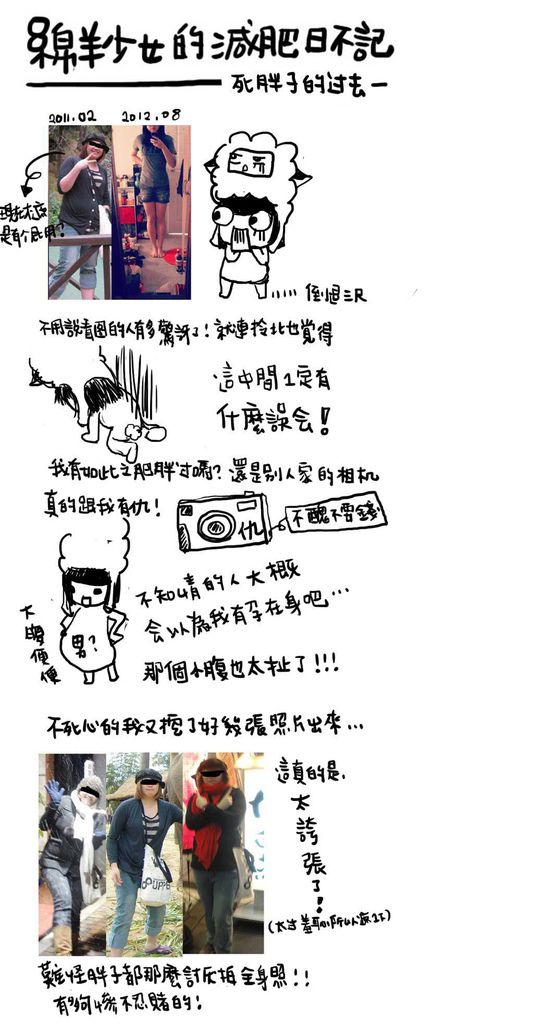 綿羊少女的減肥日不記
死胖子的过去一
2011.02 2012.08
倒退三尺
不用說看圖的人有多驚訝了!就連拎北也覺得
這中間1定有
什麼誤会!
我有如此之肥胖过嗎?還是別人家的相机
真的跟我有仇!
仇
不醜不要錢
不知情的人大概
会以為我有孕在身吧…
大腹便便
男?
那個小腹也太扯了!!!
不死心的我又挖了好幾張照片出來…
這真的是.
太誇張了!
(太过羞耻所以縮小)
難怪胖子都那麼討厭拍全身照!!
有夠慘不忍賭的!